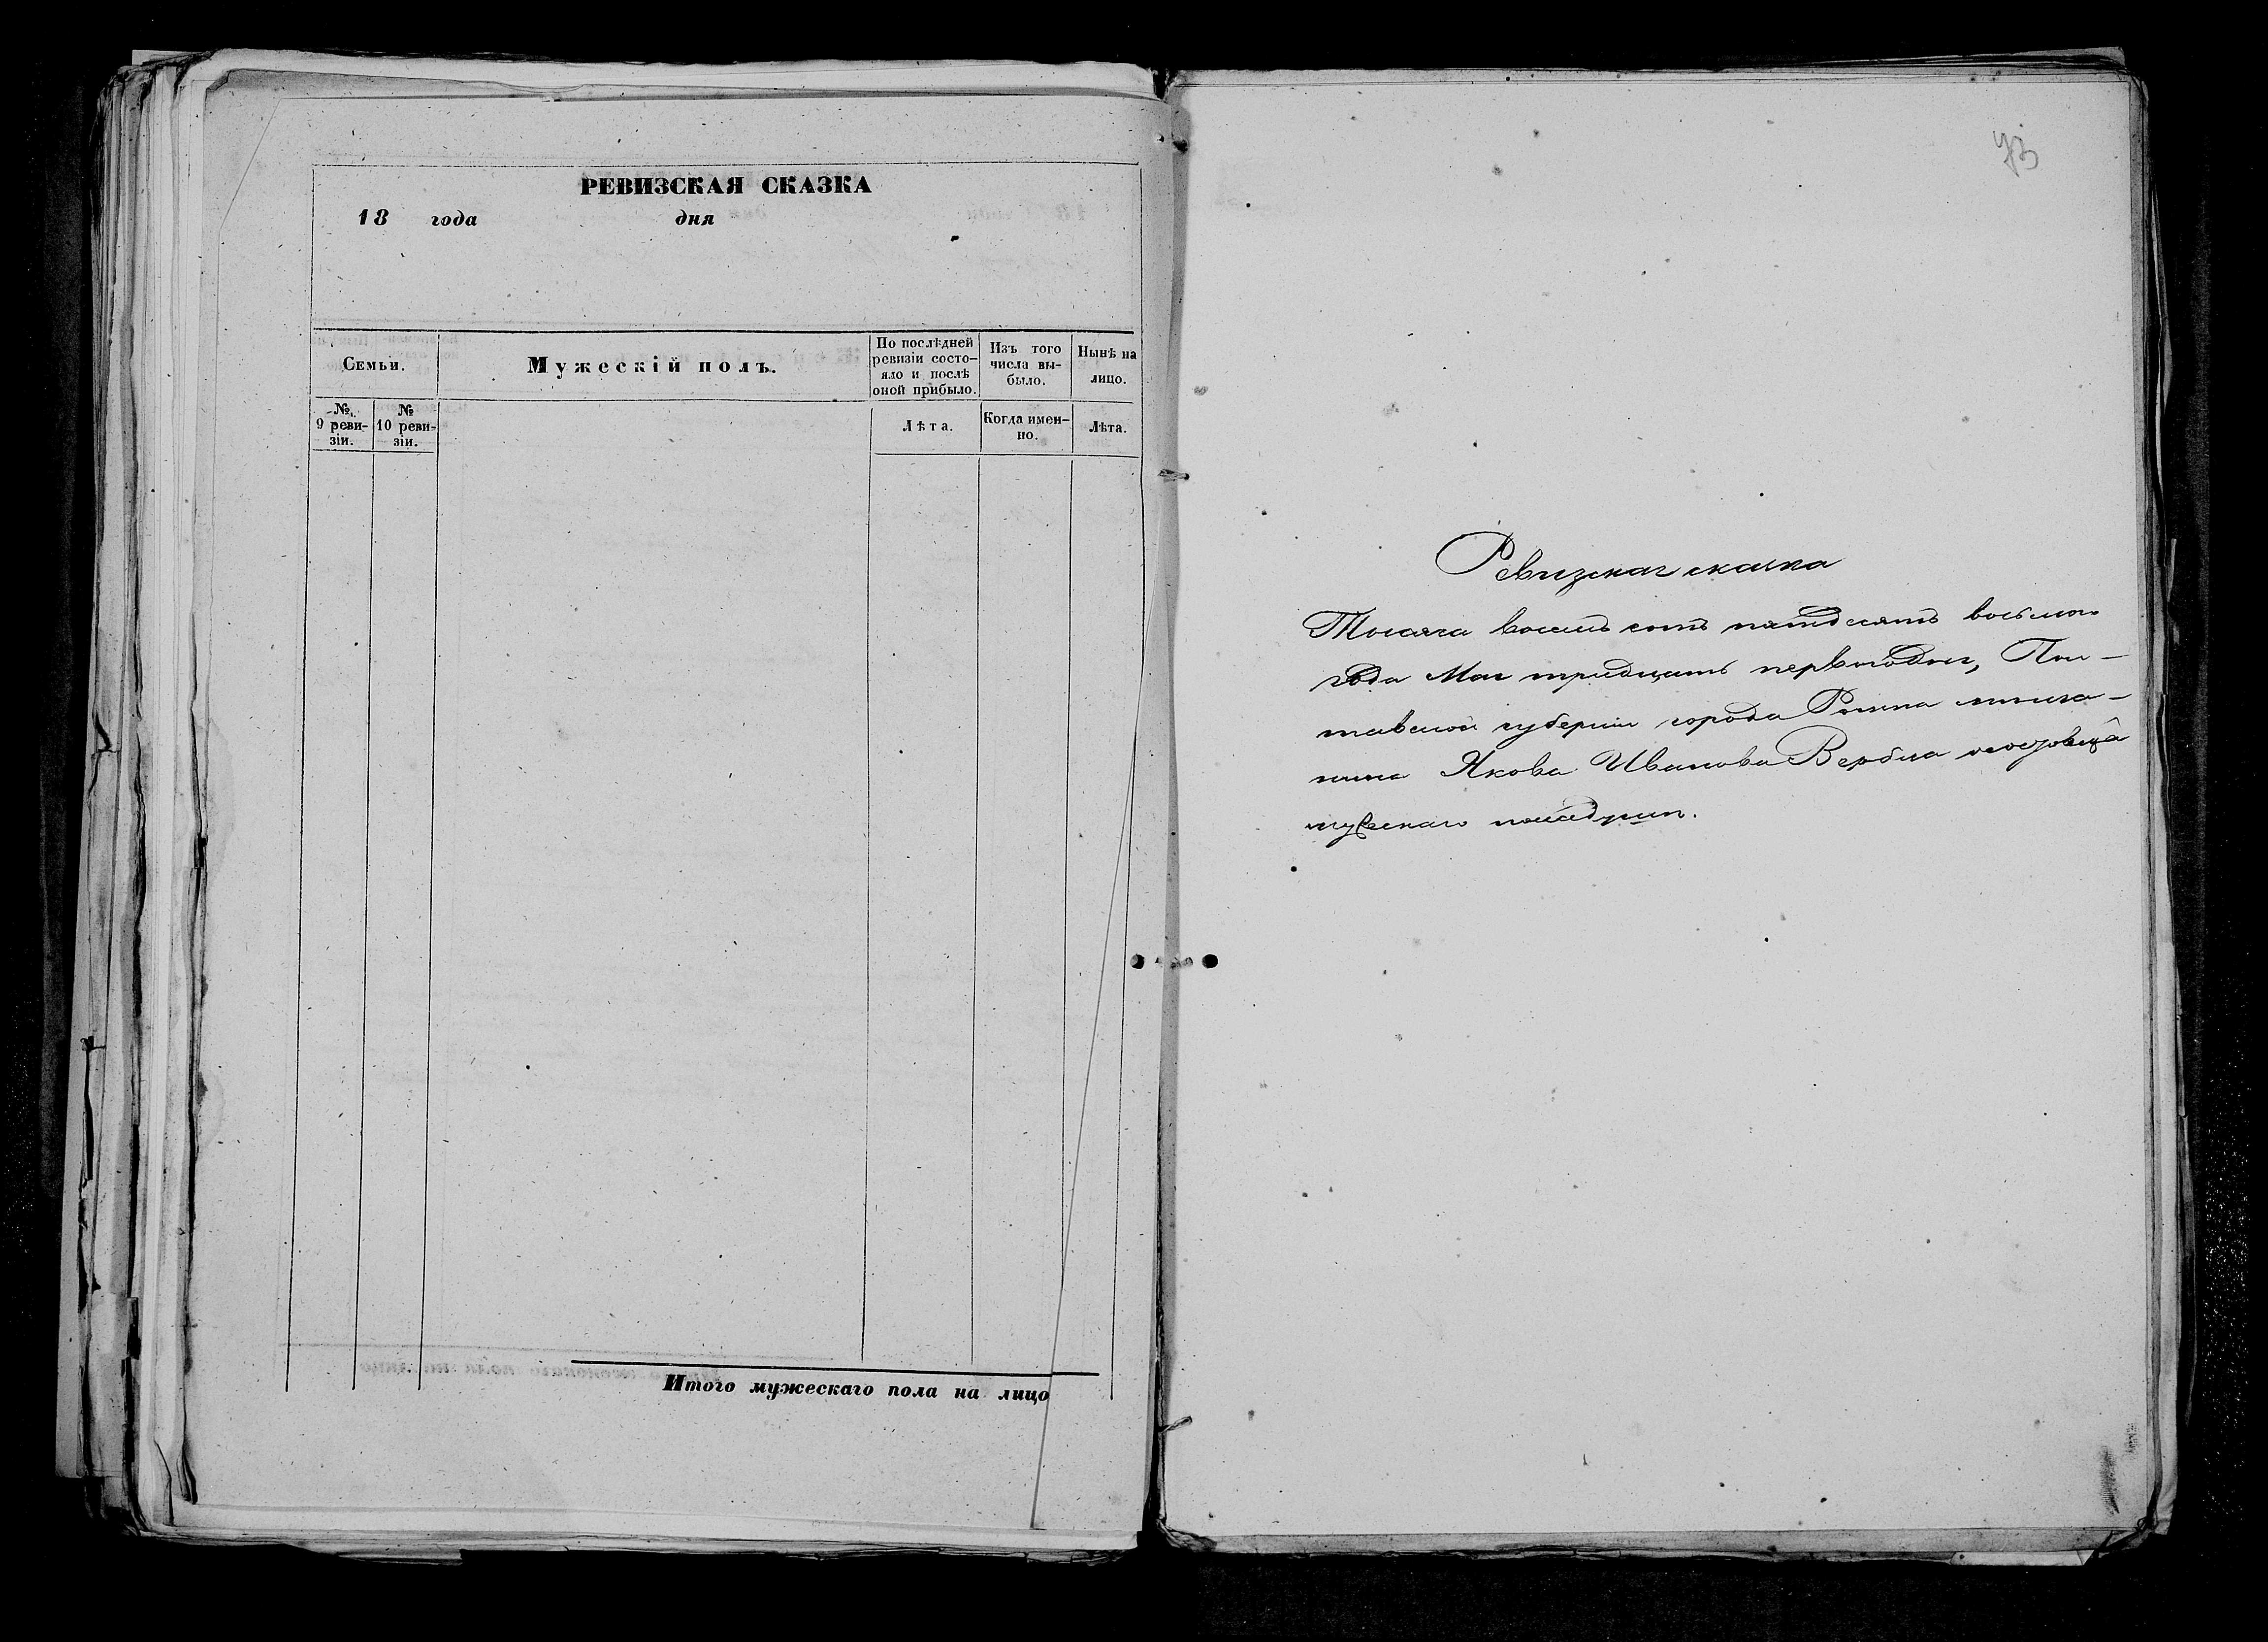 РЕВИЗСКАЯ СКАЗКА
18 года дня
Семьи.
Мужескій полъ.
По послѣдней ревизіи состо-
яло и послѣ оной прибыло.
Изъ того числа вы-
было.
Нынѣ на лицо.
№ 9 реви-
зіи.
№ 10 реви-
зіи.
Лѣта.
Когда имен-
но.
Лѣта.
Итого мужескаго пола на лицо
73
Ревизская сказка
Тысяча восемь сотъ пятдесятъ восьмого
года Мая тридцать первогодня, Пол-
тавской губерніи города Ромна мѣща-
нина Якова Иванова Вербы
мужескаго